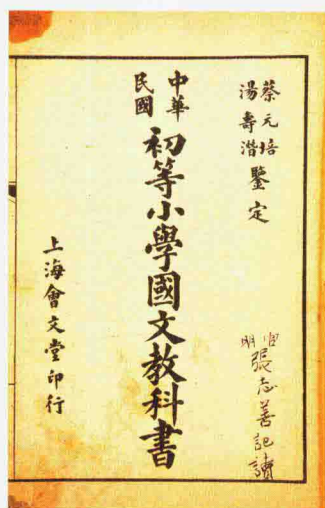 蔡元培
湯壽潛
鑒定
中華
民國
初等小學國文教科書
上海會文堂印行
張志善記讀